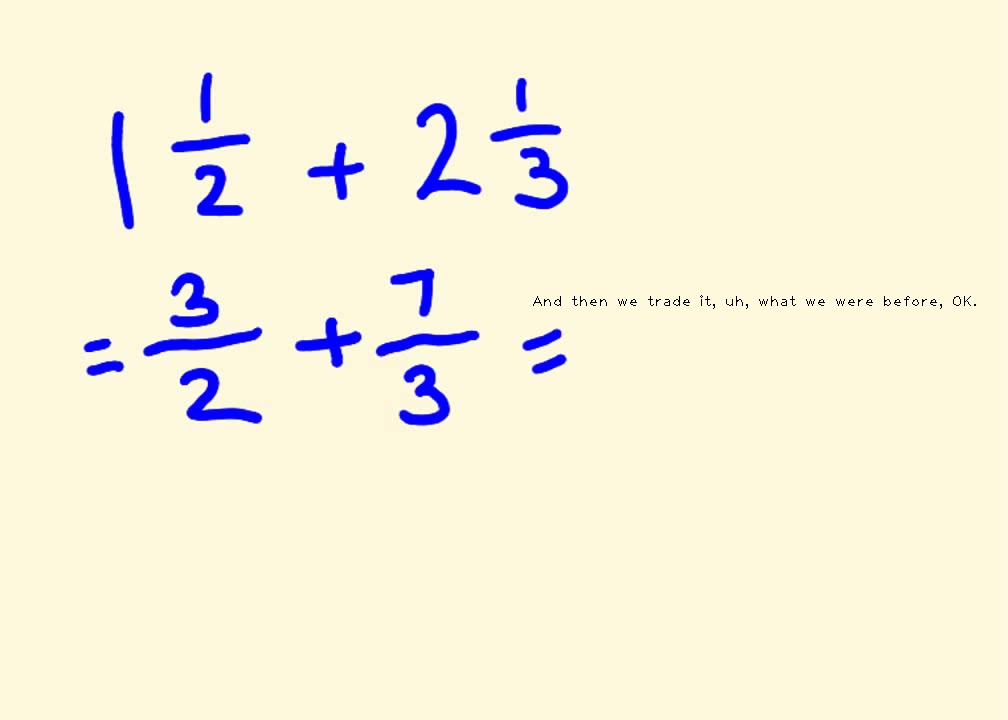 1 1/2 + 2 1/3
= 3/2 + 7/3 =
And then we trade it, uh, what we were before, OK.